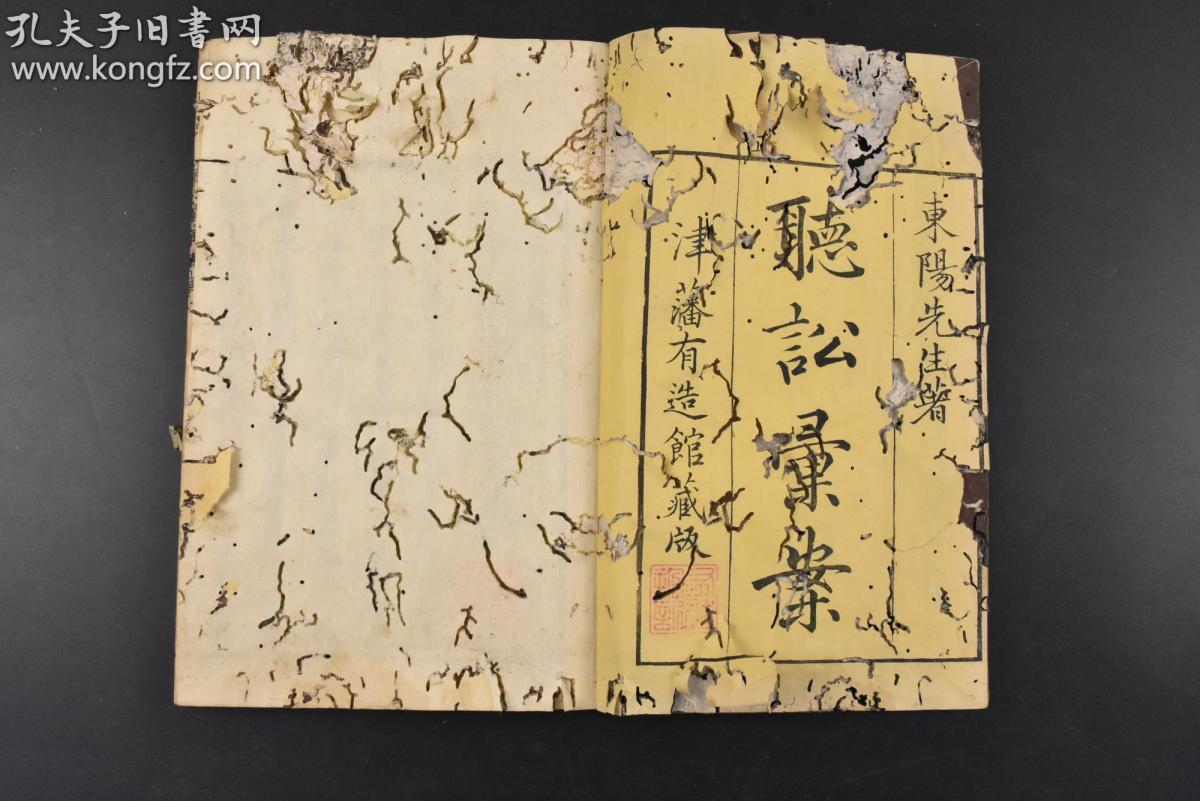 孔夫子旧书网
www.kongfz.com
東陽先生著
聽訟彙案
津藩有造館藏版